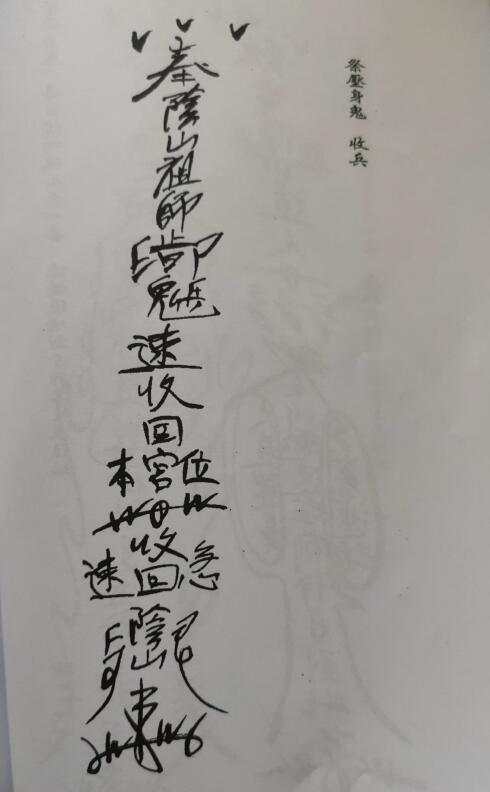 祭壓身鬼 收兵
奉陰山祖師
速收回
本宮位
收
速回急
陰山